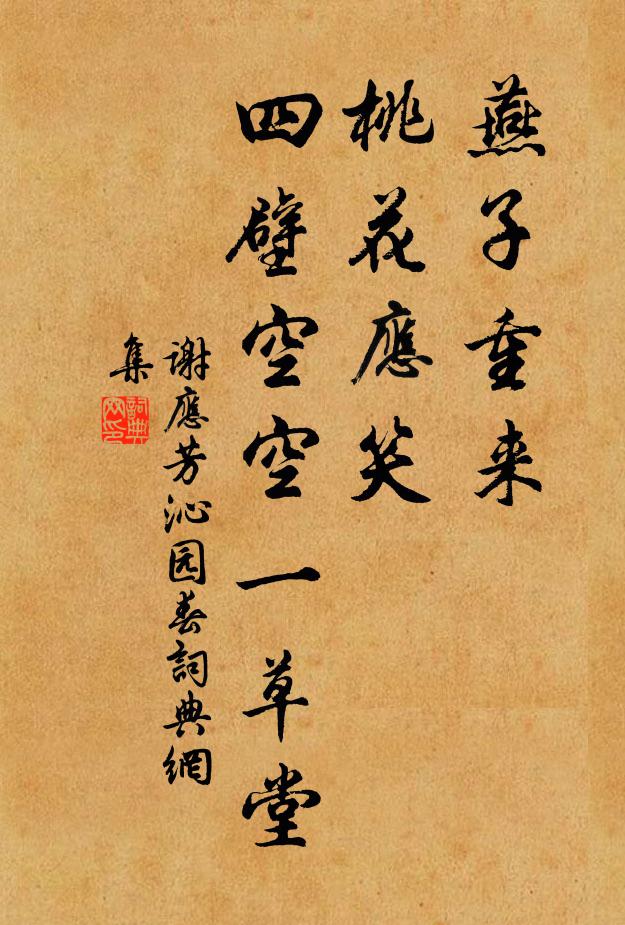 燕子重来
桃花應笑
四壁空空一草堂
謝應芳沁园春詞典網
集
詞典
网印